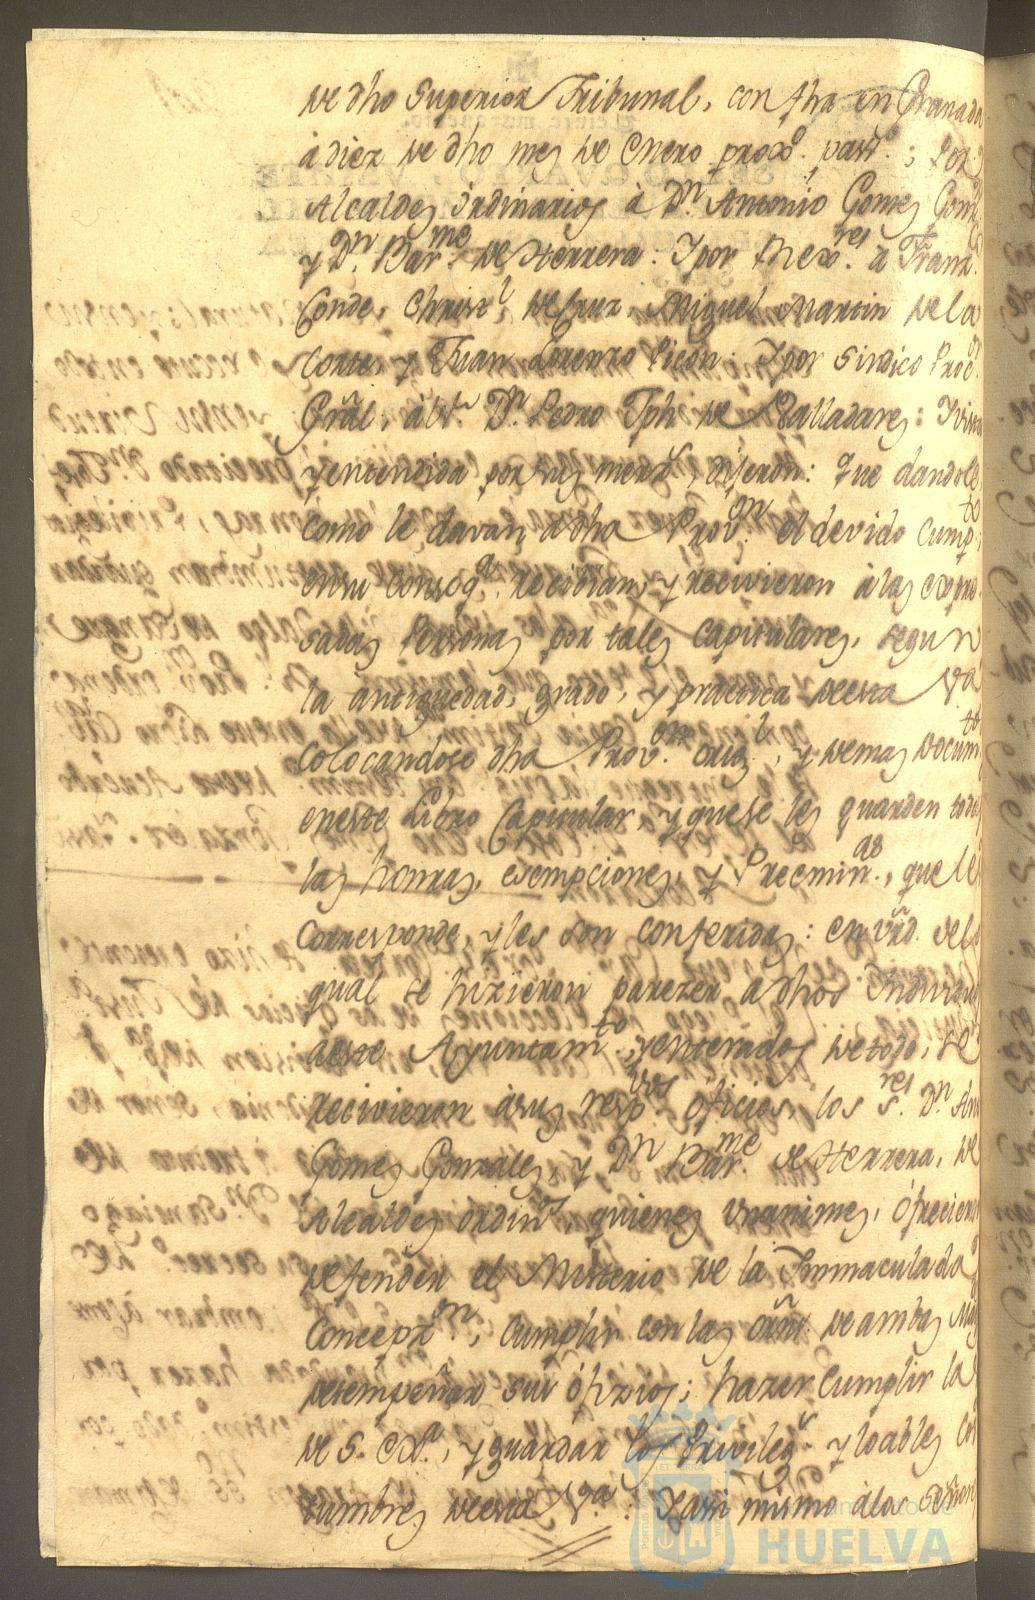 de dho Superior Tribunal, con fha en Granada
à diez de dho mes de Enero proxº. passº.; Por
Alcaldes ordinarios à Dn. Antonio Gomez Gonz.
y Dn. Barme. de Herrera: Y por Rexres. a Franco.
Conde, Christl. de Cruz, Miguel Martin de la
Corte, y Juan Lorenzo Picon: Y por sindico Procor.
Grãl, Dn. Pedro Jph de Valladares: Y vista
y entendida por sus mercs. dijeron: Que dandole,
como le davan a dha Provon. el devido Cumpto.
en su conseqª. recibian, y recivieron à las expre-
sadas Personas por tales Capitulares, segun
la antiguedad, grado, y practica de esta Va.
Colocandose dha Provon. origl., y demas Documtos
en este Libro Capitular, y que se les guarden todas
las honrras, esempciones, y Preeminas., que les
Corresponde, y les son conferidas: en vrd. de lo
qual se hizieron parezer a dhos Individuos
deste Ayuntamto., y enterados de todo, se
recivieron à sus respvos. oficios, los sres. Dn. Anto
Gomez Gonzales, y Dn. Barme. de Herrera, de
Alcaldes ordinos., quienes Vnanimes, ófrecieron
defender el Misterio de la Immaculada
Concepzon., Cumplir con las Orñs. de ambas Mag
desempeñar sus ófizios; hazer Cumplir la
de S. Exa., y guardar los Privilegs. y loables Cos
tumbres de esta Va.: Y assi mismo a los Señores
HUELVA